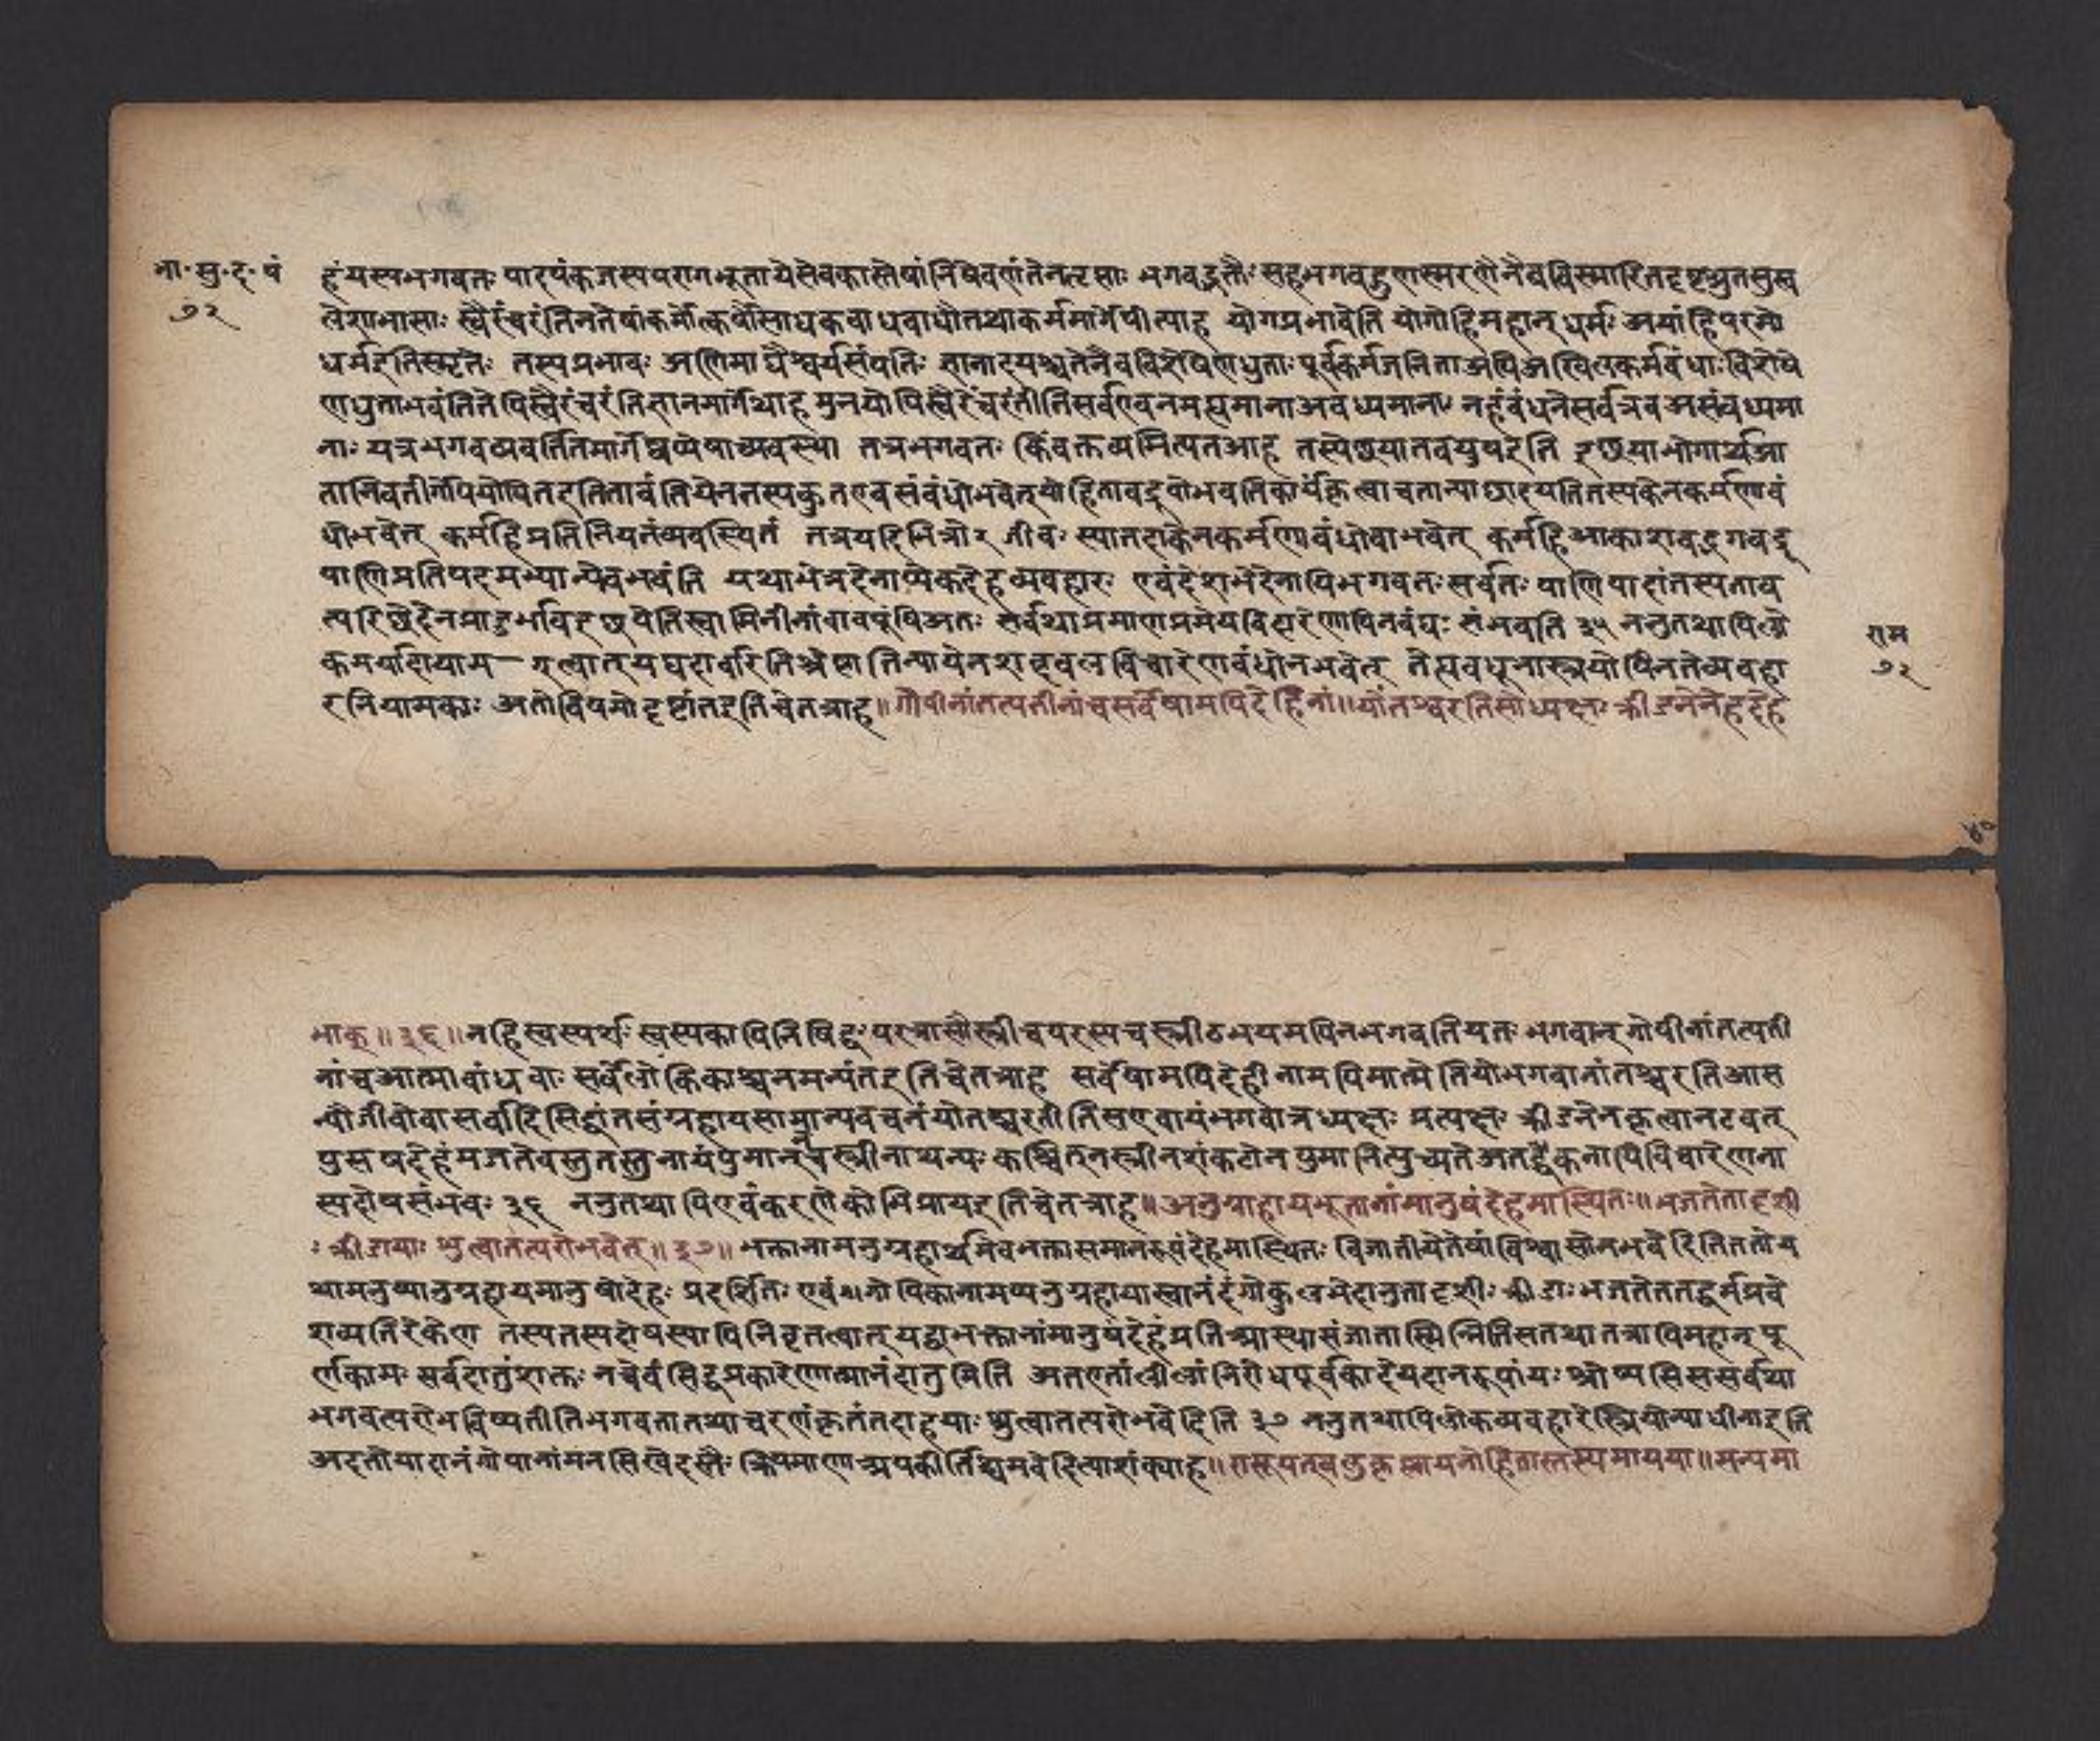 भा॰सु॰द॰पं
७२
हंयस्यभगवतः पादपंकजस्यपरागभूतायेसेवकास्तेषांनिषेवणंतेनतृप्ताः भगवद्भक्तैः सहभगवद्गुणस्मरणेनैवविस्मारितदृष्टश्रुतसुख
लेशाभासाः स्वैरंचरंतिनतेषांकर्मोत्कर्षौसाधकबाधबाधौतथाकर्ममार्गेपीत्याह योगप्रभावेति योगोहिमहान्धर्मः अयंहिपरमो
धर्मइतिस्मृतेः तस्यप्रभावः अणिमाद्यैश्वर्यसंपतिः ज्ञानादयश्चतेनैवविशेषेणधुताः पूर्वकर्मजनिताअपिअखिलकर्मबंधाः विशेषे
णधुताभवंतितेपिस्वैरंचरंतिज्ञानमार्गेथाह मुनयोपिस्वैरंचरंतीतिसर्वएवनमह्यमानाअबध्यमाना नहंबंधनेसर्वत्रव असंबध्यमा
नाः यत्रभगवव्यवर्तितमार्गेष्वप्येषाव्यवस्था तत्रभगवतः किंवक्तव्यमित्यतआह तस्येछयातवपुषइति इछयाभोगार्थमा
तानिवतीर्गोपियोषितइतितावंतियेनतस्यकुतएवसंबंधोभवेत्योहितावद्रूपोभवतिकार्यंकृत्वाचतान्याछादयतितस्यकेनकर्मणाबं
धोभवेत् कर्महिप्रतिनियतंव्यवस्थितं तत्रयदिभिन्नोर जीवः स्यातदाकेनकर्मणाबंधोवाभवेत् कर्महिआकाशवद्भगवद्रू
पाणिप्रतिपदमभ्यान्येवभवंति यथाभेत्रदेनाप्येकदेहव्यवहारः एवंदेशभेदेनापिभगवतः सर्वतः पाणिपादांतस्यताव
त्परिछेदेनप्रादुर्भावेइछयेतिस्वामिनीनांवावपूंषिअतः सर्वथाप्रमाणप्रमेयविहारेणापिनबंधः संभवति ३५ ननुतथापिलो
राम
७२
कमर्यादायाम गृत्वात्यद्यदाचरितिश्रेष्ठातिन्यायेनशब्दबलविचारेणबंधोनभवेत् तेह्यवधूनास्त्र्ययोपिनतेव्यवहा
रनियामकाः अतोविषमोदृष्टांतइतिचेतत्राह॥गोपीनांतत्पतीनांचसर्वेषामपिदेहिनां॥योंतश्चरतिसोध्यक्षः क्रीडनेनेहदेह
भाक्॥३६॥नहिस्वस्पर्शः स्वस्यकापिनिषिद्धः परत्रासौस्त्रीचपरस्यचस्त्रीउभयमपिनभगवतियतः भगवान्गोपीनांतत्पती
नांचआत्माबांधवाः सर्वेलौकिकाश्चनमन्यंतइतिचेतत्राह सर्वेषामपिदेहीनामपिमात्मेतियोभगवानांतश्चरतिआस
न्योजीवोवासर्वादिसिद्धांतसंग्रहायसामान्यवचनंयोतश्चरतीतिसएवायंभगवान्नध्यक्षः प्रत्यक्षः क्रीडनेनकृत्वानटवत्
पुरुषदेहंभजतेवस्तुतस्तुनायंपुमान्नचस्त्रीनाथन्यः कश्चित्नस्त्रीनशंकटोनपुमानित्युच्यतेअतद्यैकेनापिविचारेणना
स्यदोषसंभवः ३६ ननुतथापिएवंकरणेकोभिप्रायइतिचेतत्राह॥अनुग्राहायभूतानांमानुषंदेहमास्थितः॥भजतेतादृशी
ः क्रीडायाः श्रुत्वातत्परोभवेत्॥३७॥भक्तानामनुग्रहार्थमेवभक्तासमानरूपंदेहमास्थितः विजातीयेतेषांविश्वासोनभवेदितिततोय
थामनुष्यानुग्रहायमानुषोदेहः प्रदर्शितः एवंगोपिकानामप्यनुग्रहायास्वानंदंगोकुलभेदानुतादृशीः क्रीडाः भजतेततद्धर्मप्रवे
शव्यतिरेकेण तस्यतस्यदोषस्यापिनिवृतत्वात्यद्वाभक्तानांमानुषंदेहंप्रतिआस्थासंजातास्मिन्नितिसतथातत्रापिमहान्पू
र्णकामः सर्वंदातुंशक्तः नचेवंसिद्धप्रकारेणात्मानंदातुमिति अतएतांलीलांनिरोधपूर्वकादेयदानरूपांयः श्रोष्यसिससर्वथा
भगवत्परोभविष्यतीतिभगवतातथाचरणंकृतंतदाहयाः श्रुत्वातत्परोभवेदिति ३७ ननुतथापिलोकव्यवहारेस्त्रियोन्याधीनाइति
अदतोयादानंगोपानांमनसिखेदस्तैः क्रियमाणाअपकीर्तिश्चभवेदित्याशंक्याह॥नासूयन्खलुकृष्णायमोहितास्तस्यमायया॥मन्यमा